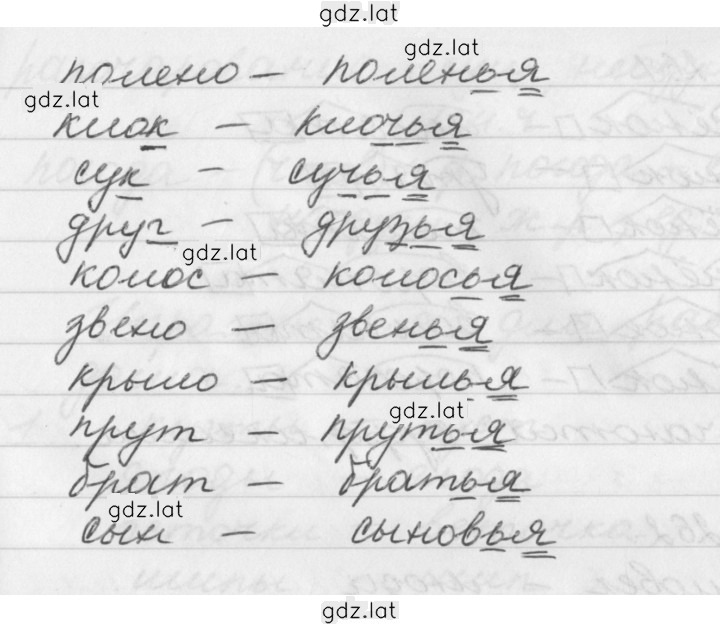 gdz.lat
gdz.lat
полено — поленья
gdz.lat
клок — клочья
сук — сучья
друг — друзья
gdz.lat
колос — колосья
звено — звенья
крыло — крылья
gdz.lat
прут — прутья
брат — братья
gdz.lat
сын — сыновья
gdz.lat